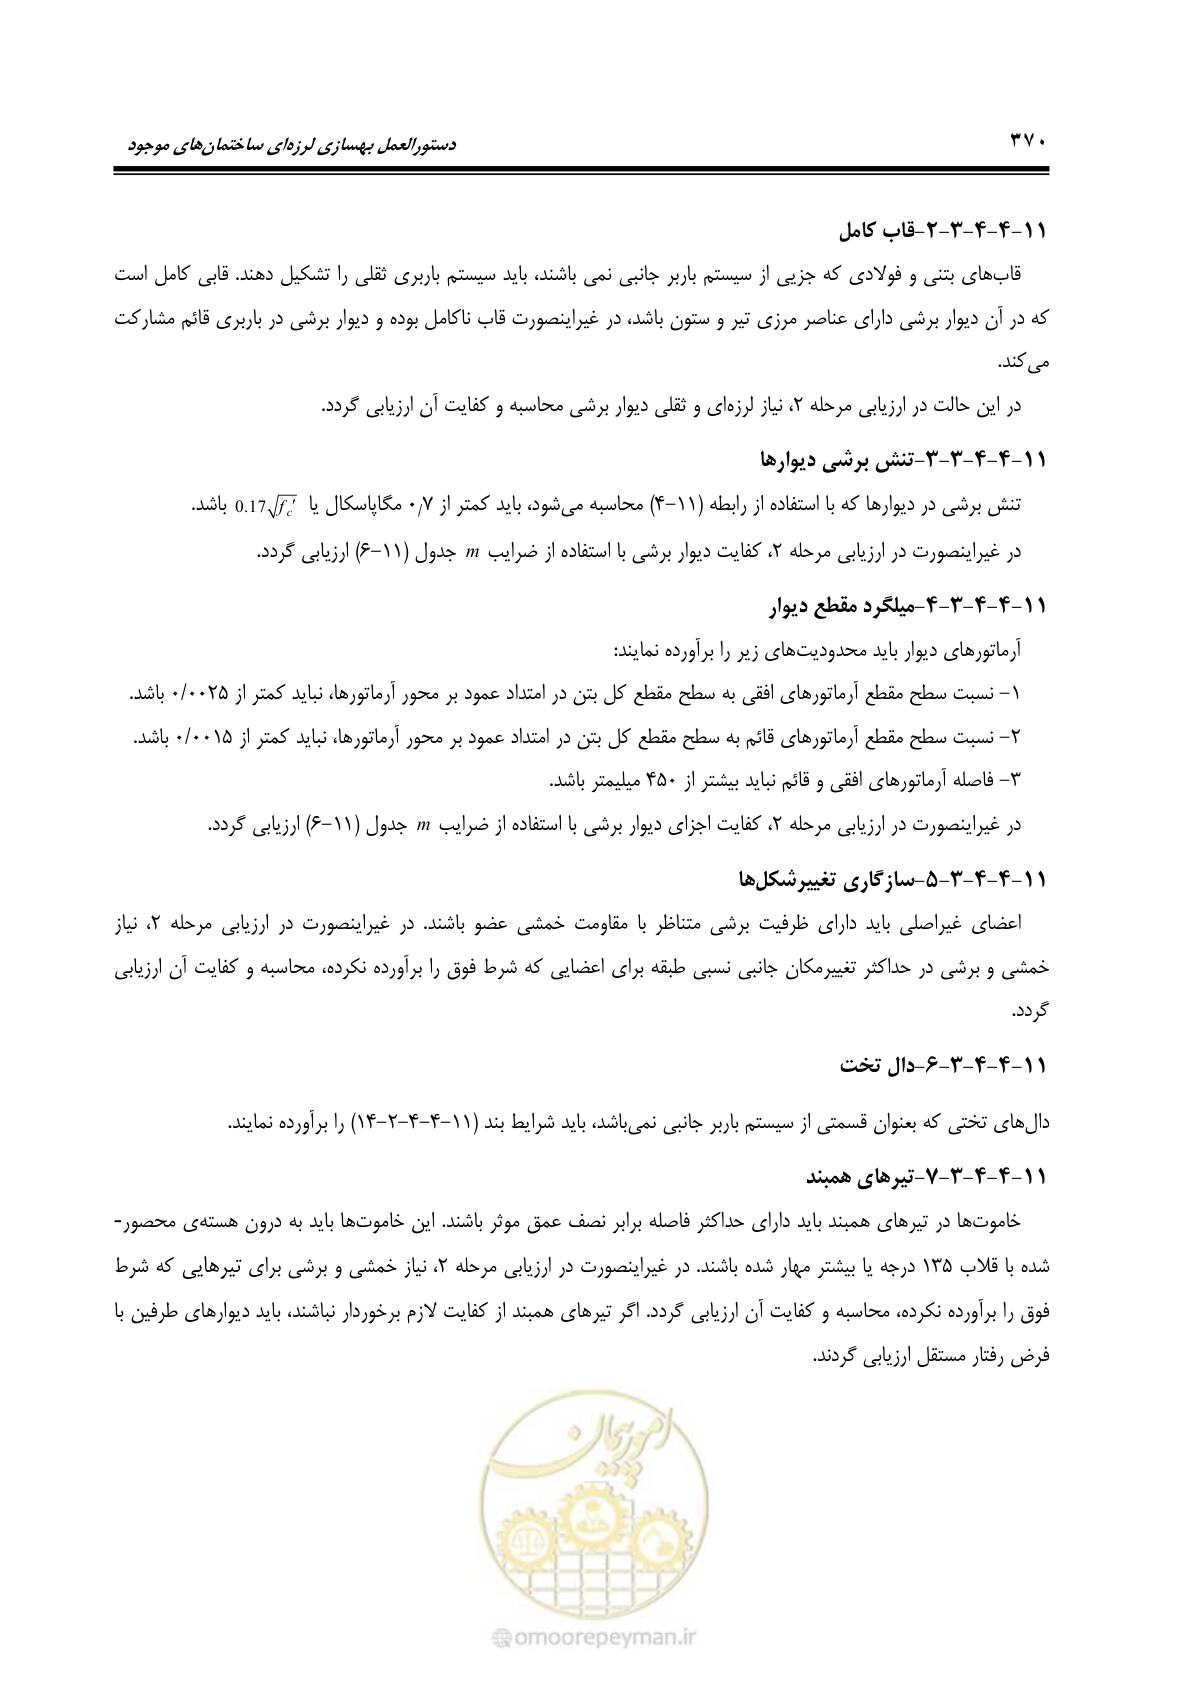 ۳۷۰
دستورالعمل بهسازی لرزه‌ای ساختمان‌های موجود
۱۱-۴-۴-۳-۲-قاب کامل
قاب‌های بتنی و فولادی که جزیی از سیستم باربر جانبی نمی باشند، باید سیستم باربری ثقلی را تشکیل دهند. قابی کامل است
که در آن دیوار برشی دارای عناصر مرزی تیر و ستون باشد، در غیراینصورت قاب ناکامل بوده و دیوار برشی در باربری قائم مشارکت
می‌کند.
در این حالت در ارزیابی مرحله ۲، نیاز لرزه‌ای و ثقلی دیوار برشی محاسبه و کفایت آن ارزیابی گردد.
۱۱-۴-۴-۳-۳-تنش برشی دیوارها
تنش برشی در دیوارها که با استفاده از رابطه (۱۱-۴) محاسبه می‌شود، باید کمتر از ۰/۷ مگاپاسکال یا 0.17√f′c باشد.
در غیراینصورت در ارزیابی مرحله ۲، کفایت دیوار برشی با استفاده از ضرایب m جدول (۱۱-۶) ارزیابی گردد.
۱۱-۴-۴-۳-۴-میلگرد مقطع دیوار
آرماتورهای دیوار باید محدودیت‌های زیر را برآورده نمایند:
۱- نسبت سطح مقطع آرماتورهای افقی به سطح مقطع کل بتن در امتداد عمود بر محور آرماتورها، نباید کمتر از ۰/۰۰۲۵ باشد.
۲- نسبت سطح مقطع آرماتورهای قائم به سطح مقطع کل بتن در امتداد عمود بر محور آرماتورها، نباید کمتر از ۰/۰۰۱۵ باشد.
۳- فاصله آرماتورهای افقی و قائم نباید بیشتر از ۴۵۰ میلیمتر باشد.
در غیراینصورت در ارزیابی مرحله ۲، کفایت اجزای دیوار برشی با استفاده از ضرایب m جدول (۱۱-۶) ارزیابی گردد.
۱۱-۴-۴-۳-۵-سازگاری تغییرشکل‌ها
اعضای غیراصلی باید دارای ظرفیت برشی متناظر با مقاومت خمشی عضو باشند. در غیراینصورت در ارزیابی مرحله ۲، نیاز
خمشی و برشی در حداکثر تغییرمکان جانبی نسبی طبقه برای اعضایی که شرط فوق را برآورده نکرده، محاسبه و کفایت آن ارزیابی
گردد.
۱۱-۴-۴-۳-۶-دال تخت
دال‌های تختی که بعنوان قسمتی از سیستم باربر جانبی نمی‌باشد، باید شرایط بند (۱۱-۴-۴-۲-۱۴) را برآورده نمایند.
۱۱-۴-۴-۳-۷-تیرهای همبند
خاموت‌ها در تیرهای همبند باید دارای حداکثر فاصله برابر نصف عمق موثر باشند. این خاموت‌ها باید به درون هسته‌ی محصور-
شده با قلاب ۱۳۵ درجه یا بیشتر مهار شده باشند. در غیراینصورت در ارزیابی مرحله ۲، نیاز خمشی و برشی برای تیرهایی که شرط
فوق را برآورده نکرده، محاسبه و کفایت آن ارزیابی گردد. اگر تیرهای همبند از کفایت لازم برخوردار نباشند، باید دیوارهای طرفین با
فرض رفتار مستقل ارزیابی گردند.
امور پیمان
omoorepeyman.ir